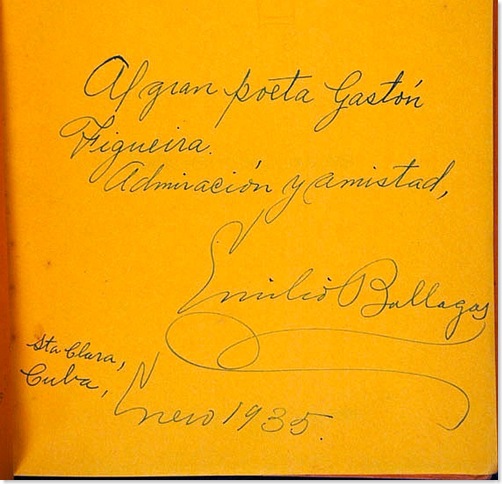 Al gran poeta Gastón
Figueira.
Admiración y amistad,
Emilio Ballagas
Sta Clara,
Cuba,
Enero 1935